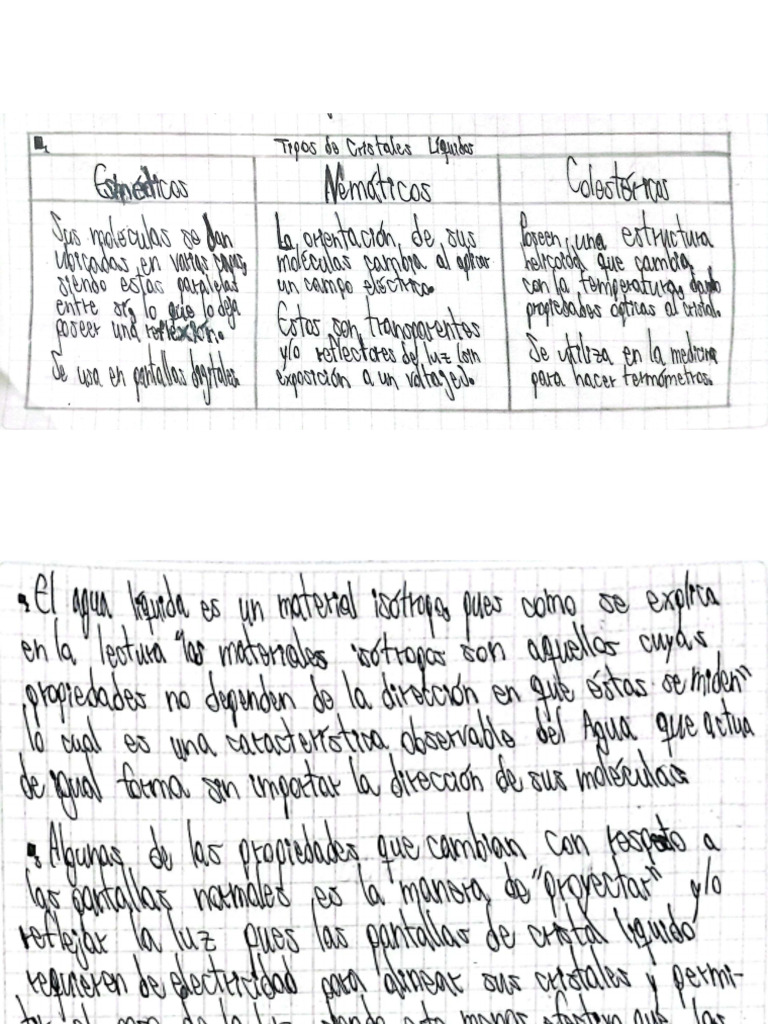 Tipos de Cristales Líquidos
Esméticos
Nemáticos
Colestéricos
Sus moléculas se dan
ubicadas en varias capas,
siendo estas paralelas
entre sí, lo que lo deja
poseer una reflexión.
Se usa en pantallas digitales.
La orientación de sus
moléculas cambia al aplicar
un campo eléctrico.
Estos son transparentes
y/o reflectores de luz con
exposición a un voltaged.
Poseen una estructura
helicoidal que cambia
con la temperatura, dando
propiedades ópticas al cristal.
Se utiliza en la medicina
para hacer termómetros.
El agua líquida es un material isótropo, pues como se explica
en la lectura "los materiales isótropos son aquellos cuyas
propiedades no dependen de la dirección en que éstas se miden"
lo cual es una característica observable del Agua que actua
de igual forma sin importar la dirección de sus moléculas
Algunas de las propiedades que cambian con respeto a
las pantallas normales es la manera de "proyectar" y/o
reflejar la luz pues las pantallas de cristal líquido
requieren de electricidad para alinear sus cristales y permi-